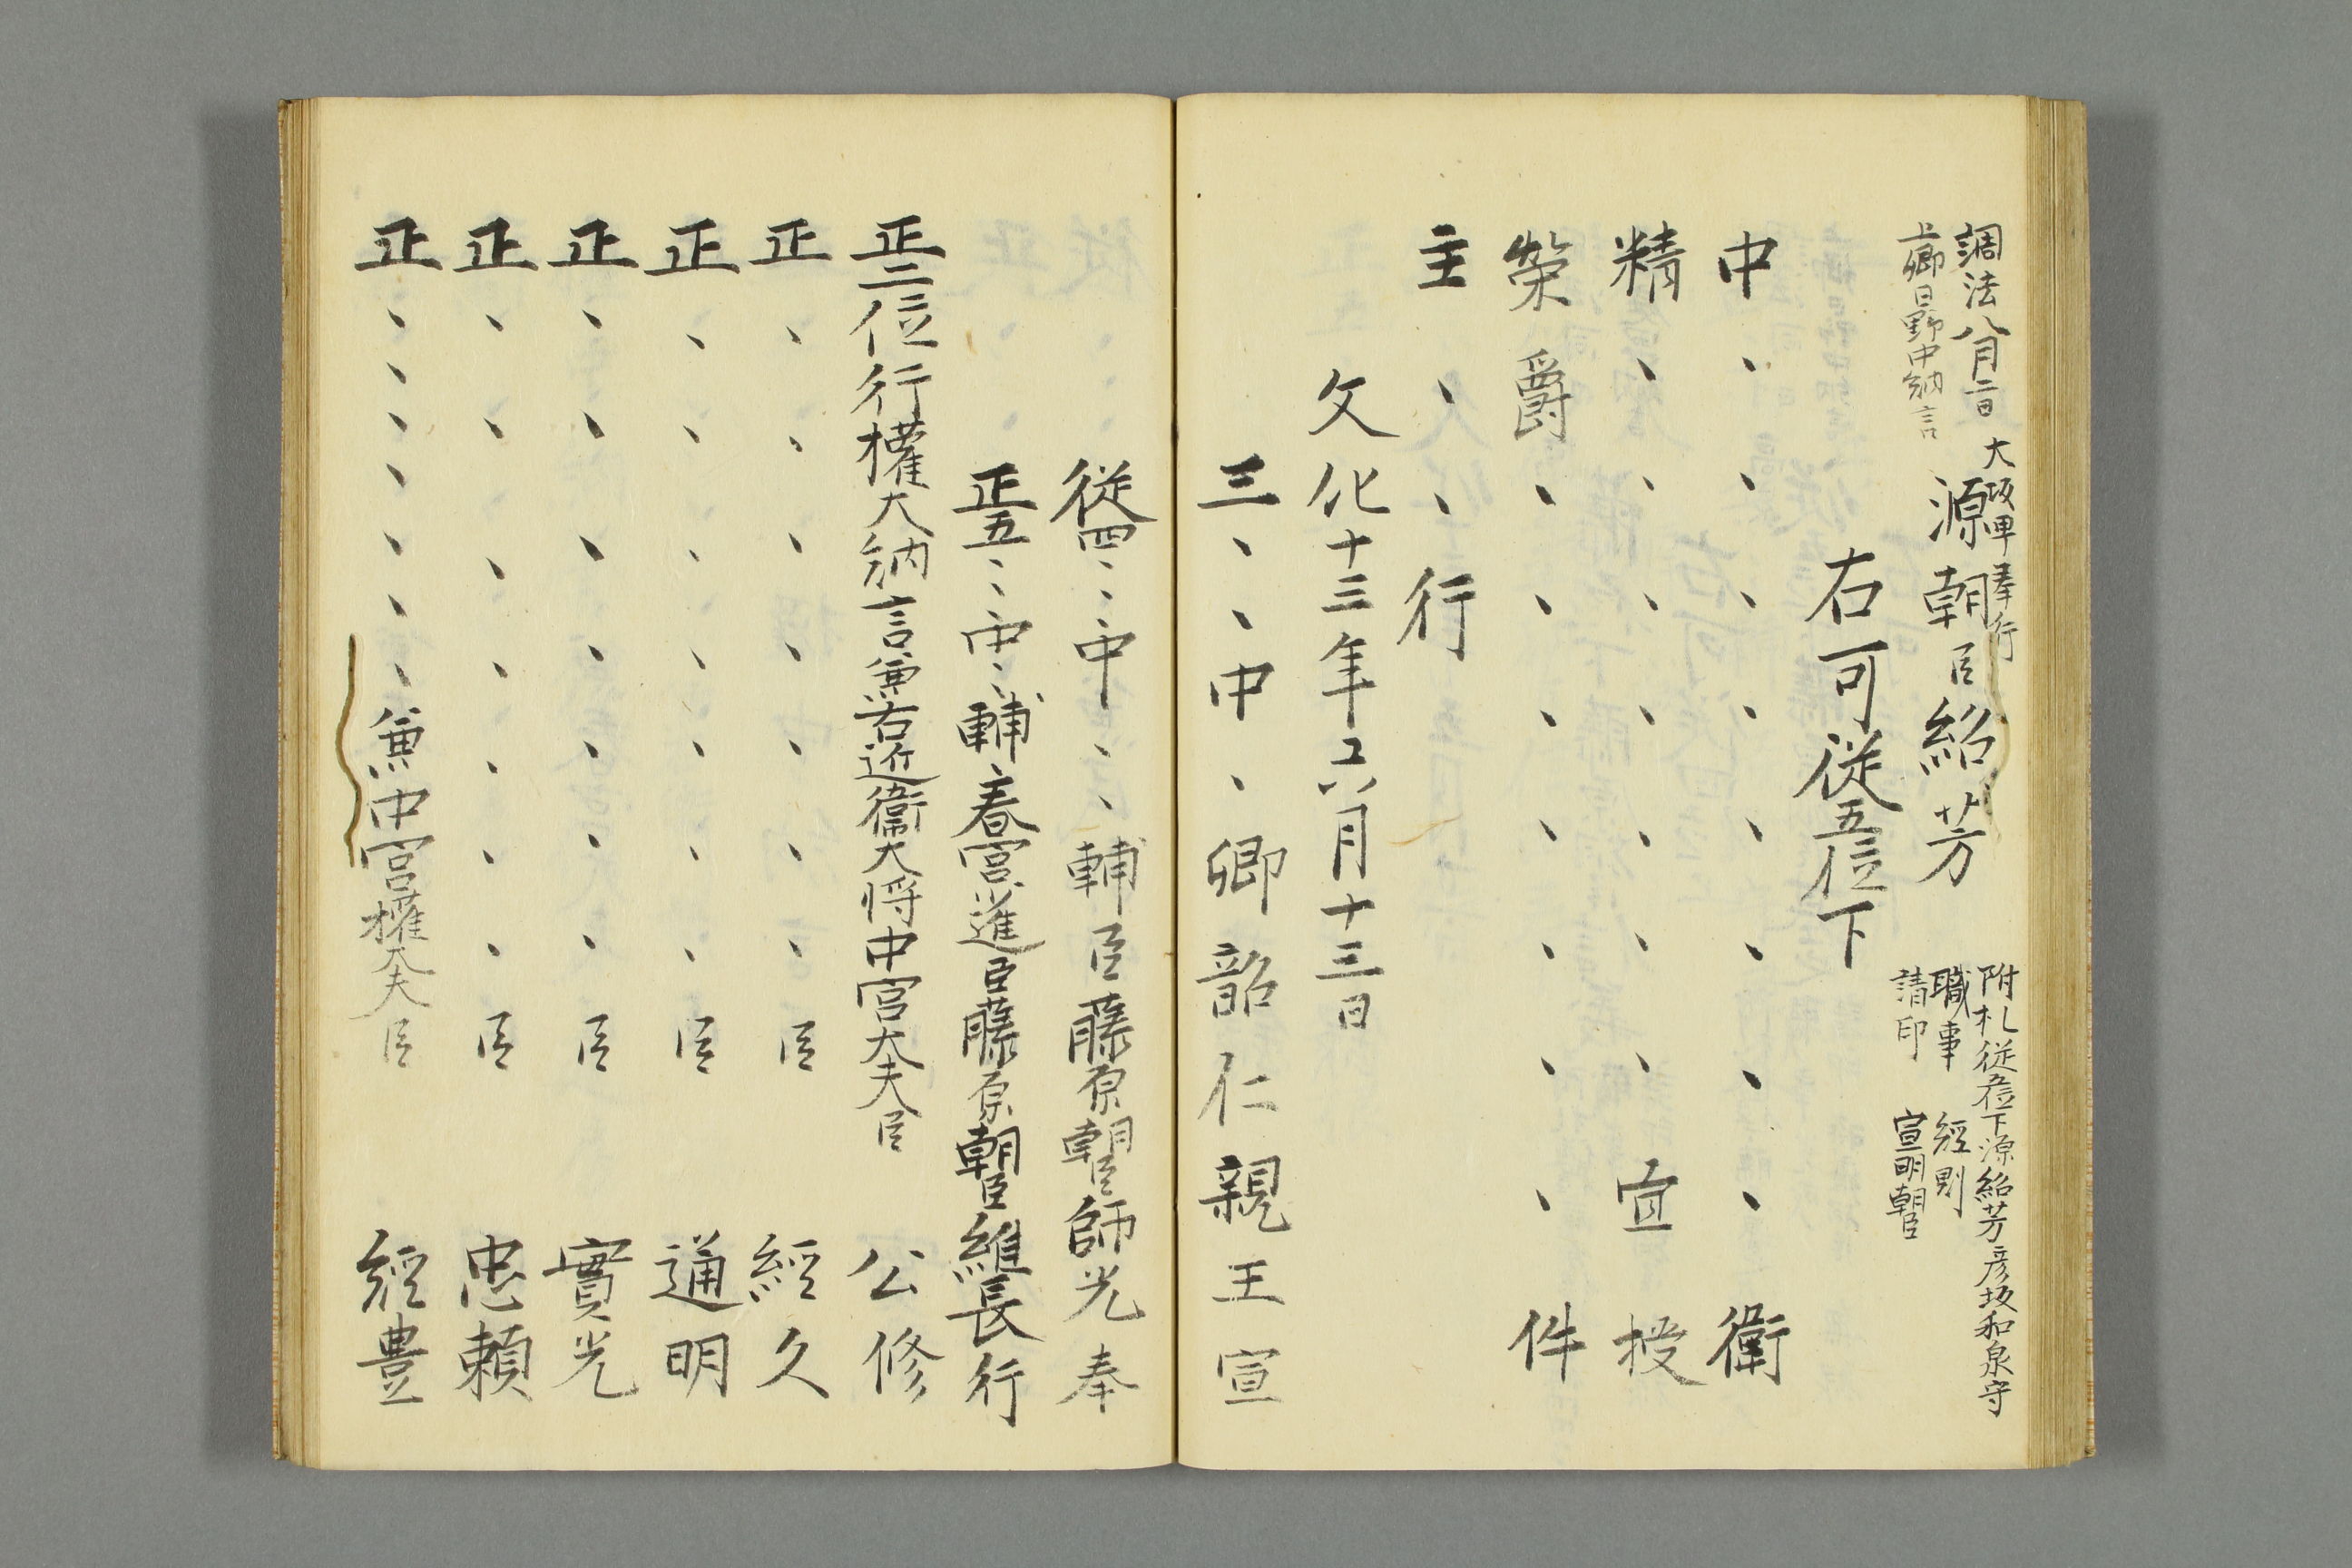 調法八月二日
上卿日野中納言
大
奉行
源朝臣紹芳
附札従五位下源紹芳彦坂和泉守
職事 経則
請印 宣明朝臣
右可従五位下
中、、、、、、、、衛
精、、、、、、、宣授
榮爵、、、、、、、件
主、、行
文化十三年六月十三日
三、、中、卿韶仁親王宣
従四、、中、、輔臣藤原朝臣師光奉
正五、、中、輔、春宮、進臣藤原朝臣維長行
正二位行權大納言兼右近衛大将中宮大夫臣 公修
正、、、、、、、臣 經久
正、、、、、、、臣 通明
正、、、、、、、臣 實光
正、、、、、、、臣 忠頼
正、、、、、、、兼中宮權大夫臣 經豊